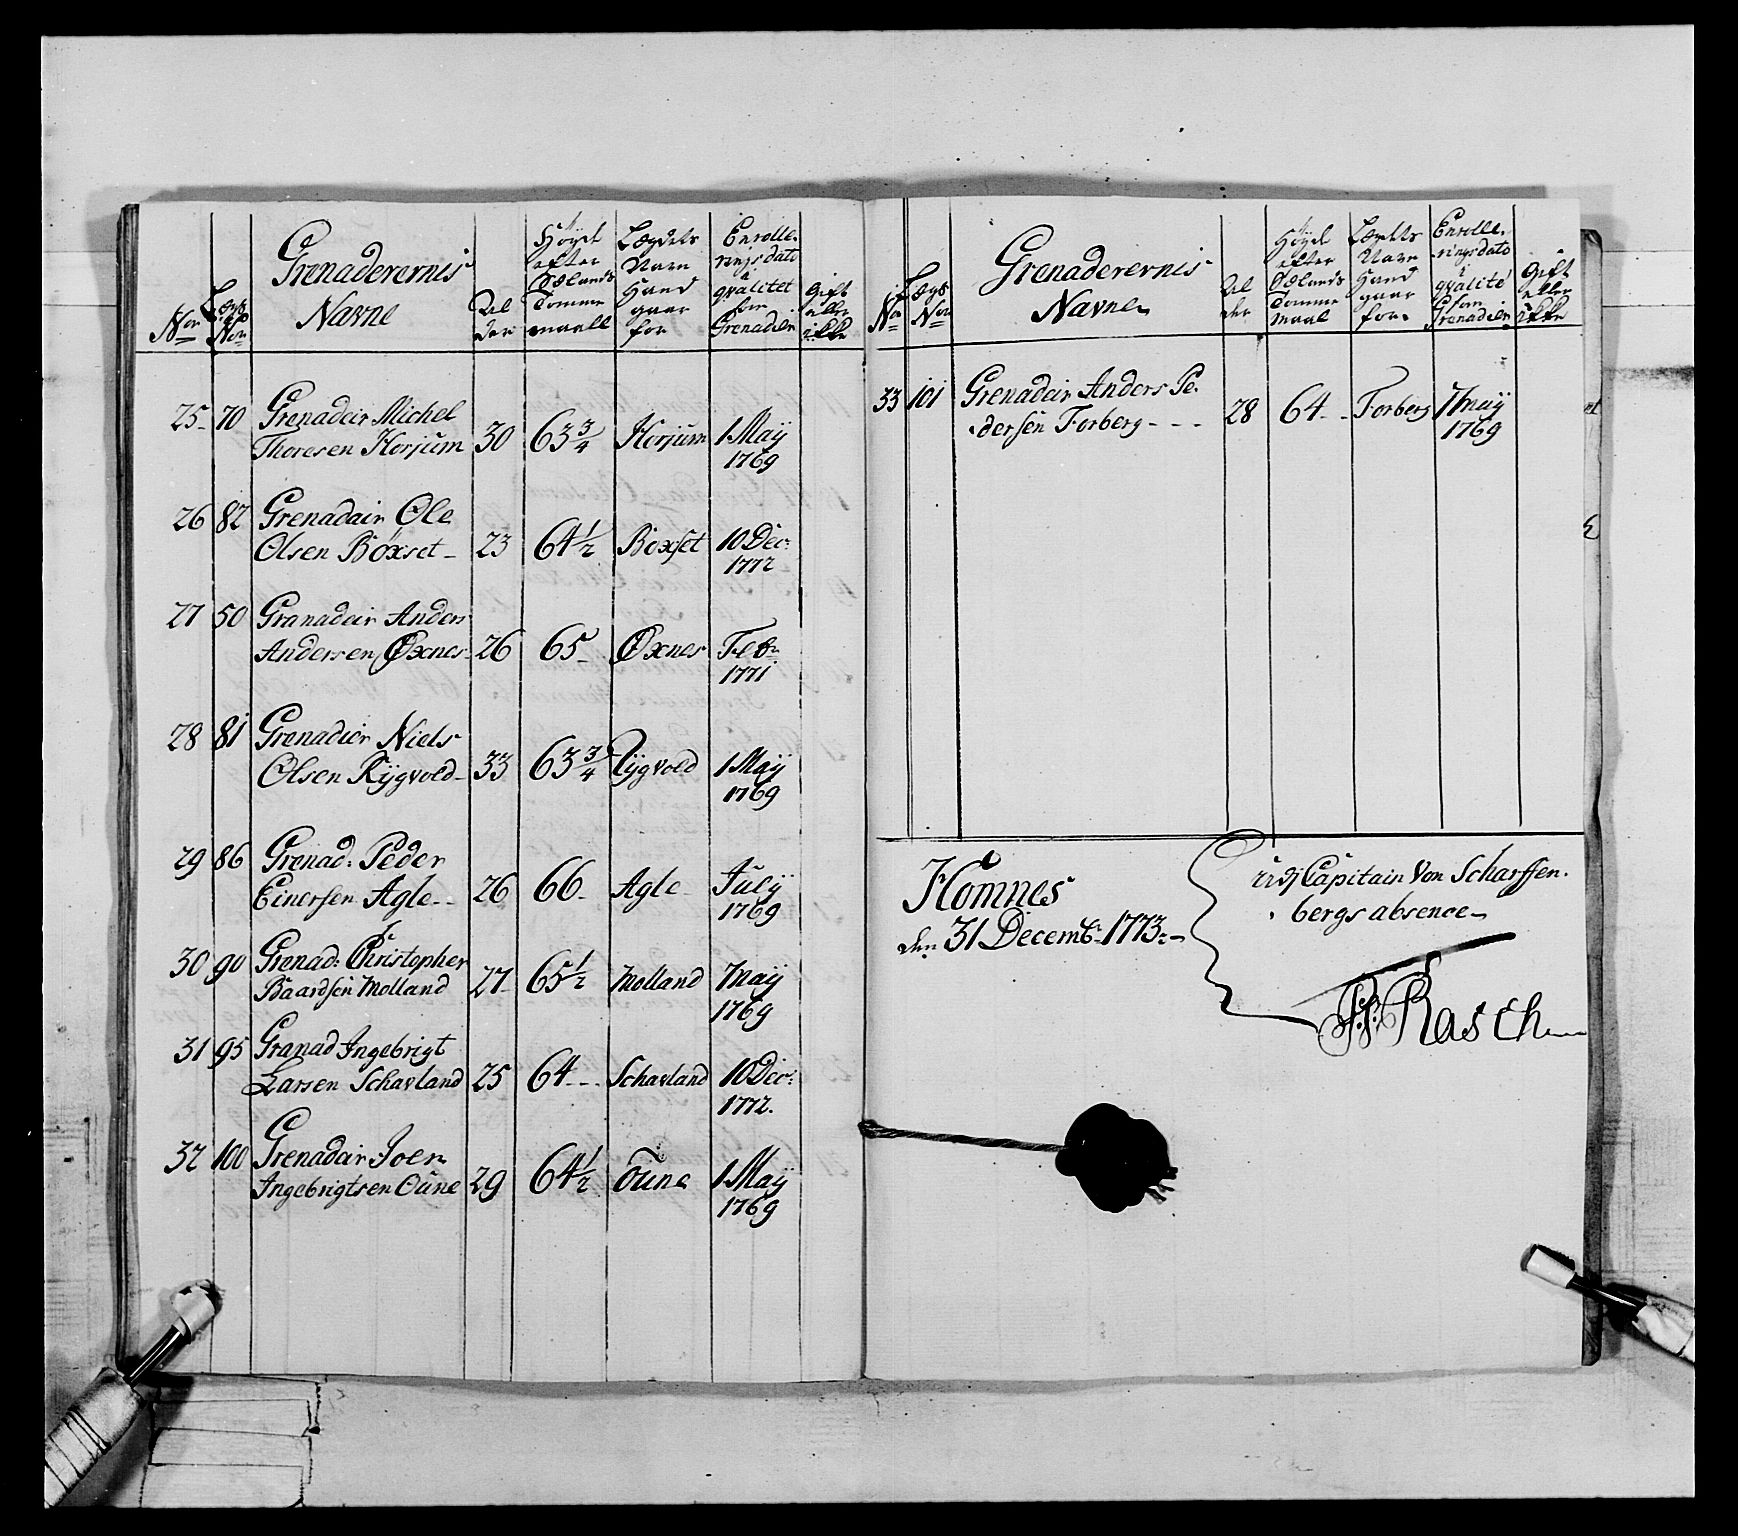 Nor
Lægs
Nor
Grenaderernis
Navne
Al
der
Höyde
efter
Siælands
Tomme
maall
Legdets
Navn
Hand
gaar
for
Enrolle-
rings dato
i
qvalitet
for
Grenadeir
Gift
eller
ikke
25- 70 Grenadeir Michel
Thoresen Horjum 30 63 3/4 Horjum 1 Maij
1769
26 82 Grenadair Ole
Olsen Böxset- 23 64 1/2 Böxset 10 Dec:
1772
27 50 Granadeir Anders
Andersen Øxnes- 26 65- Øxnes Feb
1771
28 81 Grenadier Niels
Olsen Rijgvold- 33 63 3/4 Rijgvold 1 Maij
1769
29 86 Grenad: Peder
Einersen Agle-- 26 66- Agle- Julij
1769
30 90 Grenad: Christopher
Baardsen Molland 27- 65 1/2 Molland 7 maij
1769
31 95 Granad Ingebrigt
Larsen Schavland 25 64--- Schavland 10 Dec:
1772.
32 100 Grenadeir Joen
Ingebrigtsen Oune 29 64 1/2 Oune 1 Maij
1769
Nor
Lægs
Nor
Grenaderernis
Navne
Al
der
Höyde
efter
Siælands
Tomme
maal
Legdets
Navn
Hand
gaar
for
Enrolle-
rings dato
i
qvalité
for
Grenadeir
Gift
eller
ikke
33 101 Grenadeir Anders Pe-
dersen Forberg--- 28 64- Forberg 7 maij
1769
Homnes
den 31 Decembr 1773:-
udj Capitain Von Scharffen-
bergs absence-
Rasch